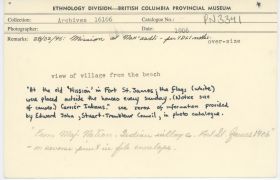 ETHNOLOGY DIVISION—BRITISH COLUMBIA PROVINCIAL MUSEUM
Collection: Archives 16166 Catalogue No.: PN3341
Photographer: Date: 1906
Remarks: Mission at
over-size
view of village from the beach
"At the old 'Mission' in Fort St. James; the flags (white)
was placed outside the houses every Sunday. (Notice use
of canoes) Carrier Indians." use terms of information provided
by Edward John, Stuart-Trembleur Council, in photo catalogue.
"From Maj. Nation. Indian village. Fort St. James 1906"
- on reverse print in file envelope.